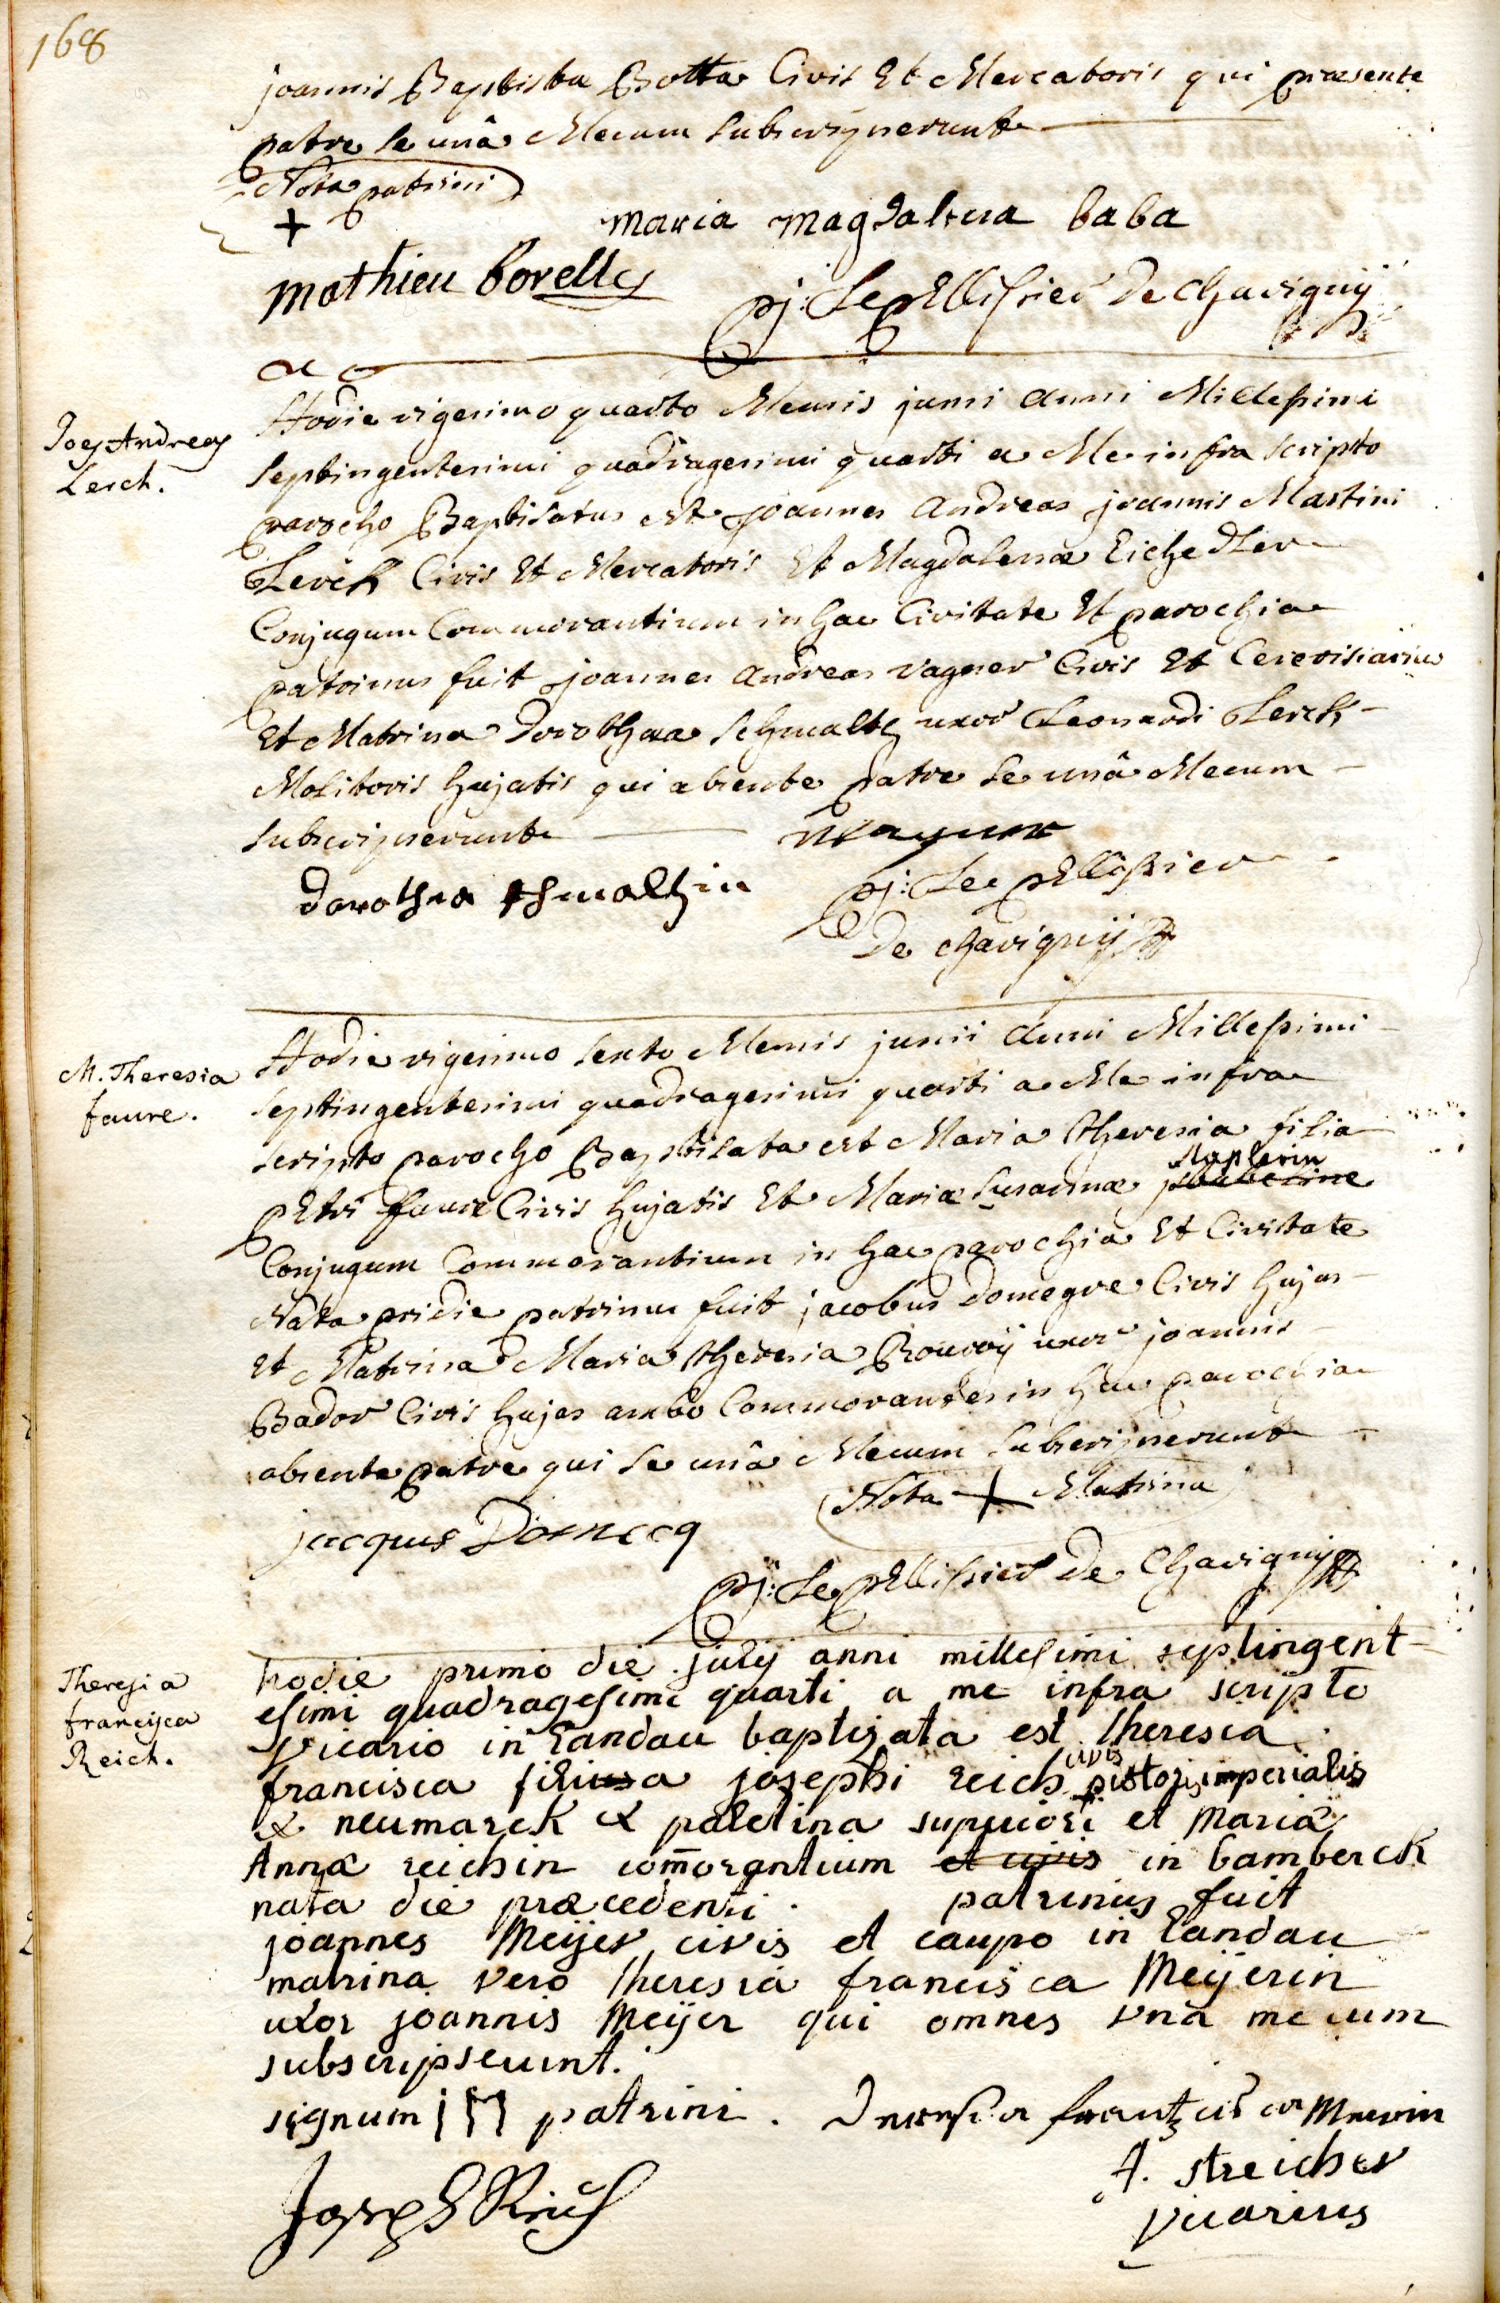 168
joannis Baptistæ Botta Civis Et Mercatoris qui præsente
patre se unâ Mecum subsignerunt
Nota patrini
+
maria magdalena baba
mathieu borelly
pj: Le pEllissier De Chavignÿ
Joes Andreas
Lerch.
Hodie vigesimo quarto Mensis junii anni Millessimi
septingentesimi quadragesimi quarti a Me infra scripto
parocho Baptisatus est joannes andreas joannis Martini
Lerch Civis Et Mercatoris Et Magdalenæ Eichedler
Conjugum Commorantium in hac Civitate Et parochia
patrinus fuit joannes andreas vagner Civis Et Cerevisiarius
Et Matrina dorothæa schmaltz uxor Leonardi Lerch
Molitoris hujatis qui absente patre se unâ Mecum
subsignerunt
Wagner
dorothea schmaltzin
pj: Le pEllissier
De chavignÿ
M. Theresia
faure.
Hodie vigesimo sexto Mensis junii anni Millessimi
septingentesimi quadragesimi quarti a Me infra
scripto parocho Baptisata est Maria theresia filia
pEtri faure Civis hujatis Et Mariæ susannæ
Staplerin
Conjugum Commorantium in hac parochia Et Civitate
Nata pridie patrinus fuit jacobus domegre Civis hujas
et Matrina Maria theresia Rouroÿ uxor joannis
Bador Civis hujas ambo Commorantes in hac parochia
absente patre qui se unâ Mecum subsignerunt
Nota + Matrina
jacques Domecq
pj: Le pEllissier de Chavignÿ
Theresia
francisca
Reich.
hodie primo die julij anni millesimi septingent
esimi quadragesimi quarti a me infra scripto
vicario in Landau baptizata est theresia
francisca filiusa josephi reich civis pistoris imperialis
ex neumarck ex paletina superiori et maria
Anna reichin com̄orantium et civis in bamberck
nata die præcedenti. patrinus fuit
joannes Meijer civis et caupo in Landau
matrina vero theresia francisca Meijerin
uxor joannis Meijer qui omnes vna me cum
subscripserunt.
signum patrini. Theresia frantzisca Meierin
Joseph Reich
A. streicher
vicarius